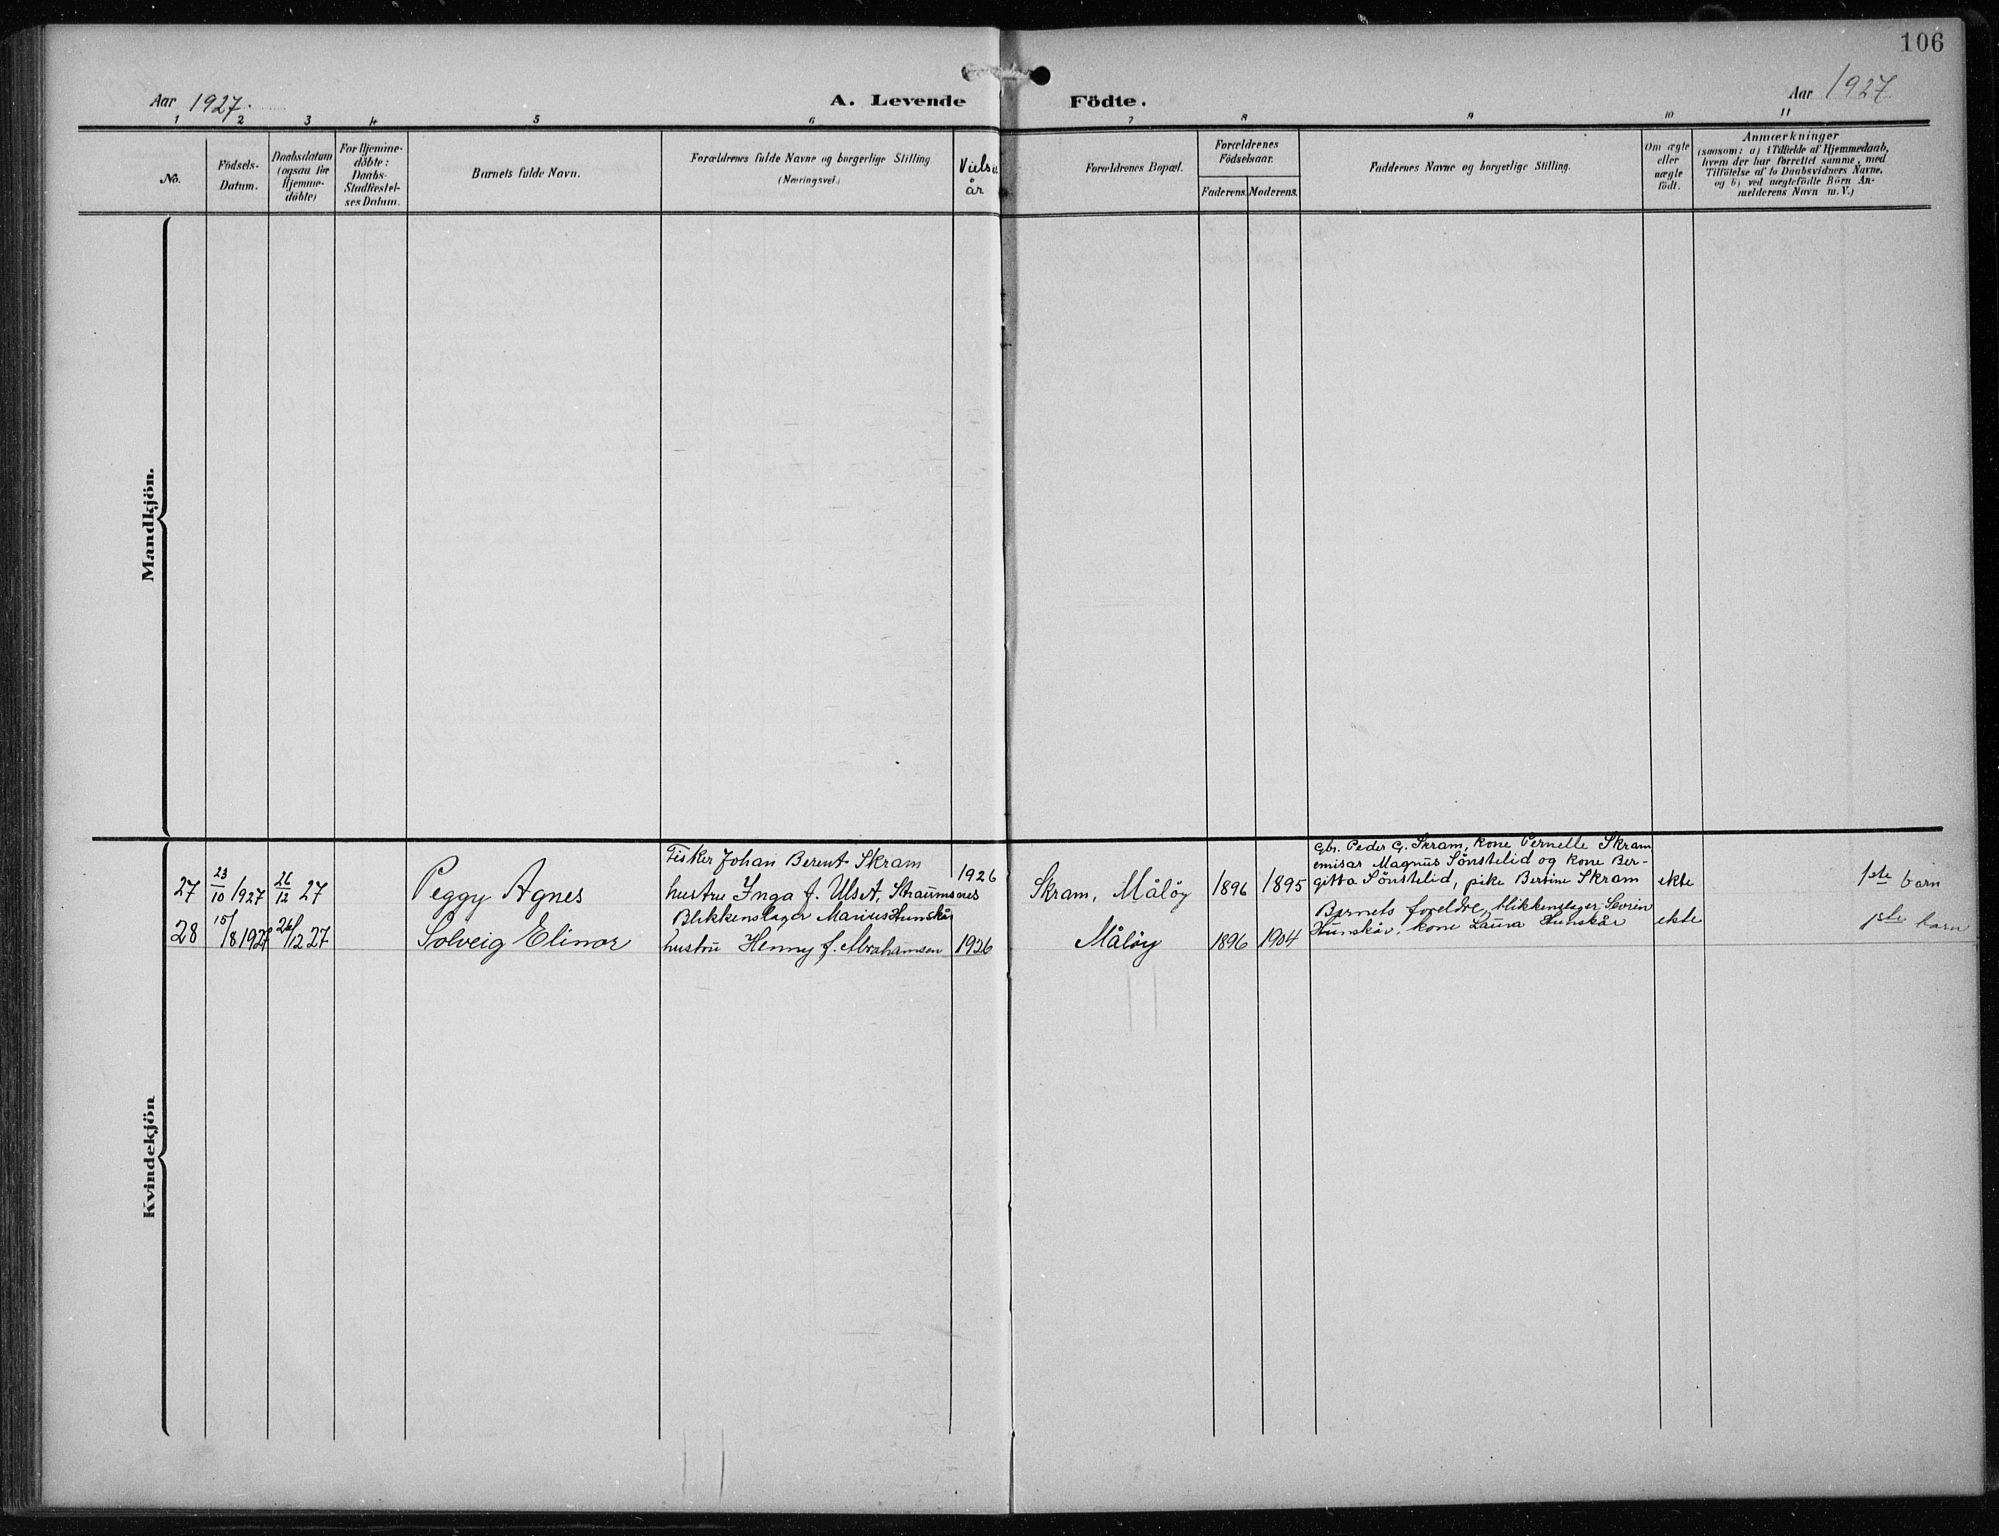 106
Aar 1927.
A. Levende Födte.
Aar 1927
1 2 3 4 5 6 7 8 9 10 11
No.
Födsels-
Datum.
Daabsdatum
(ogsaa for
Hjemme-
döbte)
For Hjemme-
döbte:
Daabs-
Stadfestel-
ses Datum.
Barnets fulde Navn.
Forældrenes fulde Navne og borgerlige Stilling
(Næringsvei.)
Vielses
år
Forældrenes Bopæl.
Forældrenes
Födselsaar.
Faderens. Moderens.
Faddernes Navne og borgerlige Stilling.
Om ægte
eller
uægte
födt.
Anmærkninger
(saasom: a) i Tilfælde af Hjemmedaab,
hvem der har forrettet samme, med
Tilföielse af to Daabsvidners Navne,
og b) ved uægtefödte Börn An-
melderens Navn m. V.)
Mandkjön.
Kvindekjön
27 23/10 1927 26/12 27 Peggy Agnes
Fisker Johan Berent Skram
hustru Inga f. Ulset, Straumsnes
1926
Skram, Målöy 1896 1895
Gbr. Peder G. Skram, kone Pernelle Skram
emisær Magnus Sönstelid og kone Ber-
gitta Sönstelid, pike Bertine Skram
ekte
1ste barn
28 15/8 1927 26/12 27 Solveig Elinor
Blikkenslager Marius Hunskår
hustru Henny f. Abrahamsen
1926
Målöy 1896 1904
Barnets foreldre, blikkenslager Severin
Hunskår, kone Laura Hunskår
ekte
1ste barn